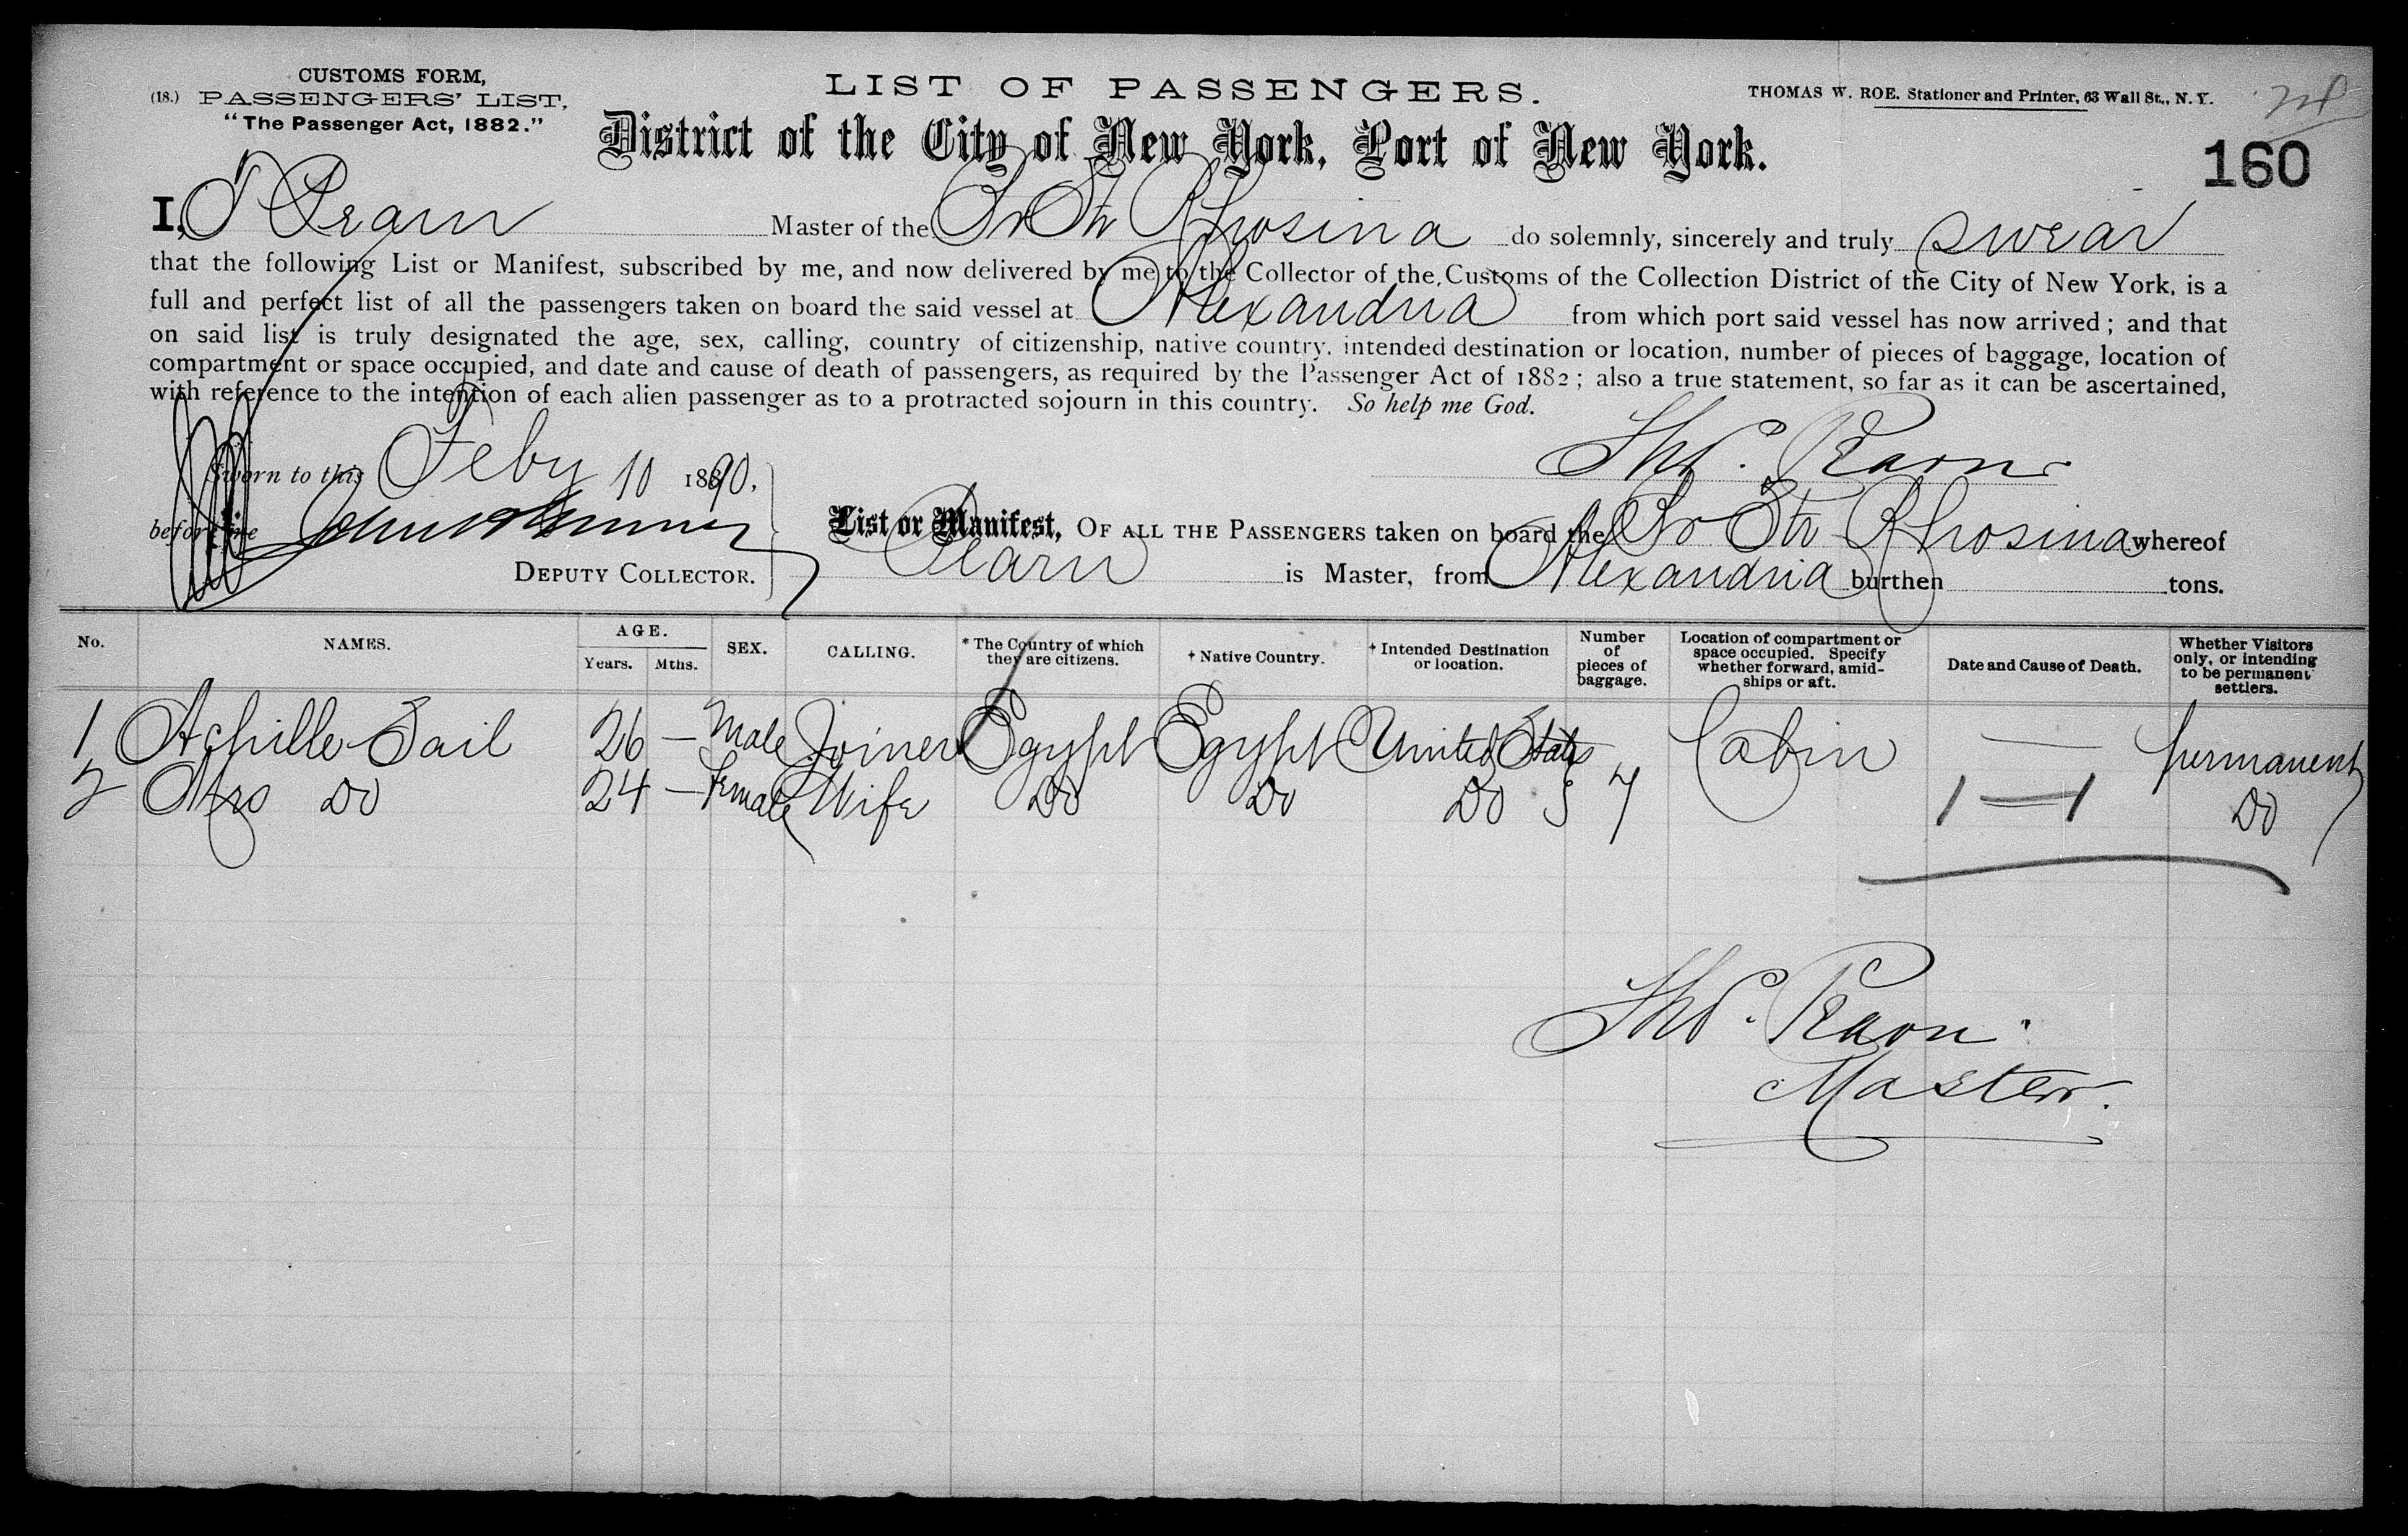 CUSTOMS FORM,
(18.) PASSENGERS' LIST,
"The Passenger Act, 1882."
LIST OF PASSENGERS.
THOMAS W. ROE. Stationer and Printer, 63 Wall St., N. Y.
District of the City of New York, Port of New York.
160
I, T Pearn Master of the Br Str Rhosina do solemnly, sincerely and truly swear
that the following List or Manifest, subscribed by me, and now delivered by me to the Collector of the Customs of the Collection District of the City of New York, is a
full and perfect list of all the passengers taken on board the said vessel at Alexandria from which port said vessel has now arrived; and that
on said list is truly designated the age, sex, calling, country of citizenship, native country, intended destination or location, number of pieces of baggage, location of
compartment or space occupied, and date and cause of death of passengers, as required by the Passenger Act of 1882; also a true statement, so far as it can be ascertained,
with reference to the intention of each alien passenger as to a protracted sojourn in this country. So help me God.
Sworn to this Feby 10 1890,
Thos. Pearn
before me
DEPUTY COLLECTOR.
List or Manifest, OF ALL THE PASSENGERS taken on board the Br Str Rhosina whereof
Pearn is Master, from Alexandria burthen tons.
No. NAMES. AGE. Years. Mths. SEX. CALLING. * The Country of which they are citizens. † Native Country. † Intended Destination or location. Number of pieces of baggage. Location of compartment or space occupied. Specify whether forward, amidships or aft. Date and Cause of Death. Whether Visitors only, or intending to be permanent settlers.
1 Achille Sail 26 — Male Joiner Egypt Egypt United States Cabin — permanent
2 Mrs Do 24 — Female Wife Do Do Do 7 1 — 1 Do
Thos. Pearn
Master.